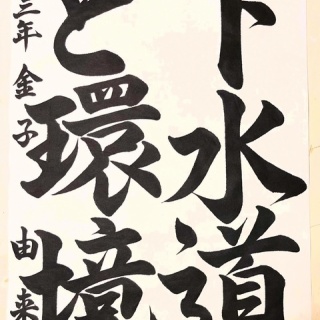 下水道
と環境
三年 金子 由来